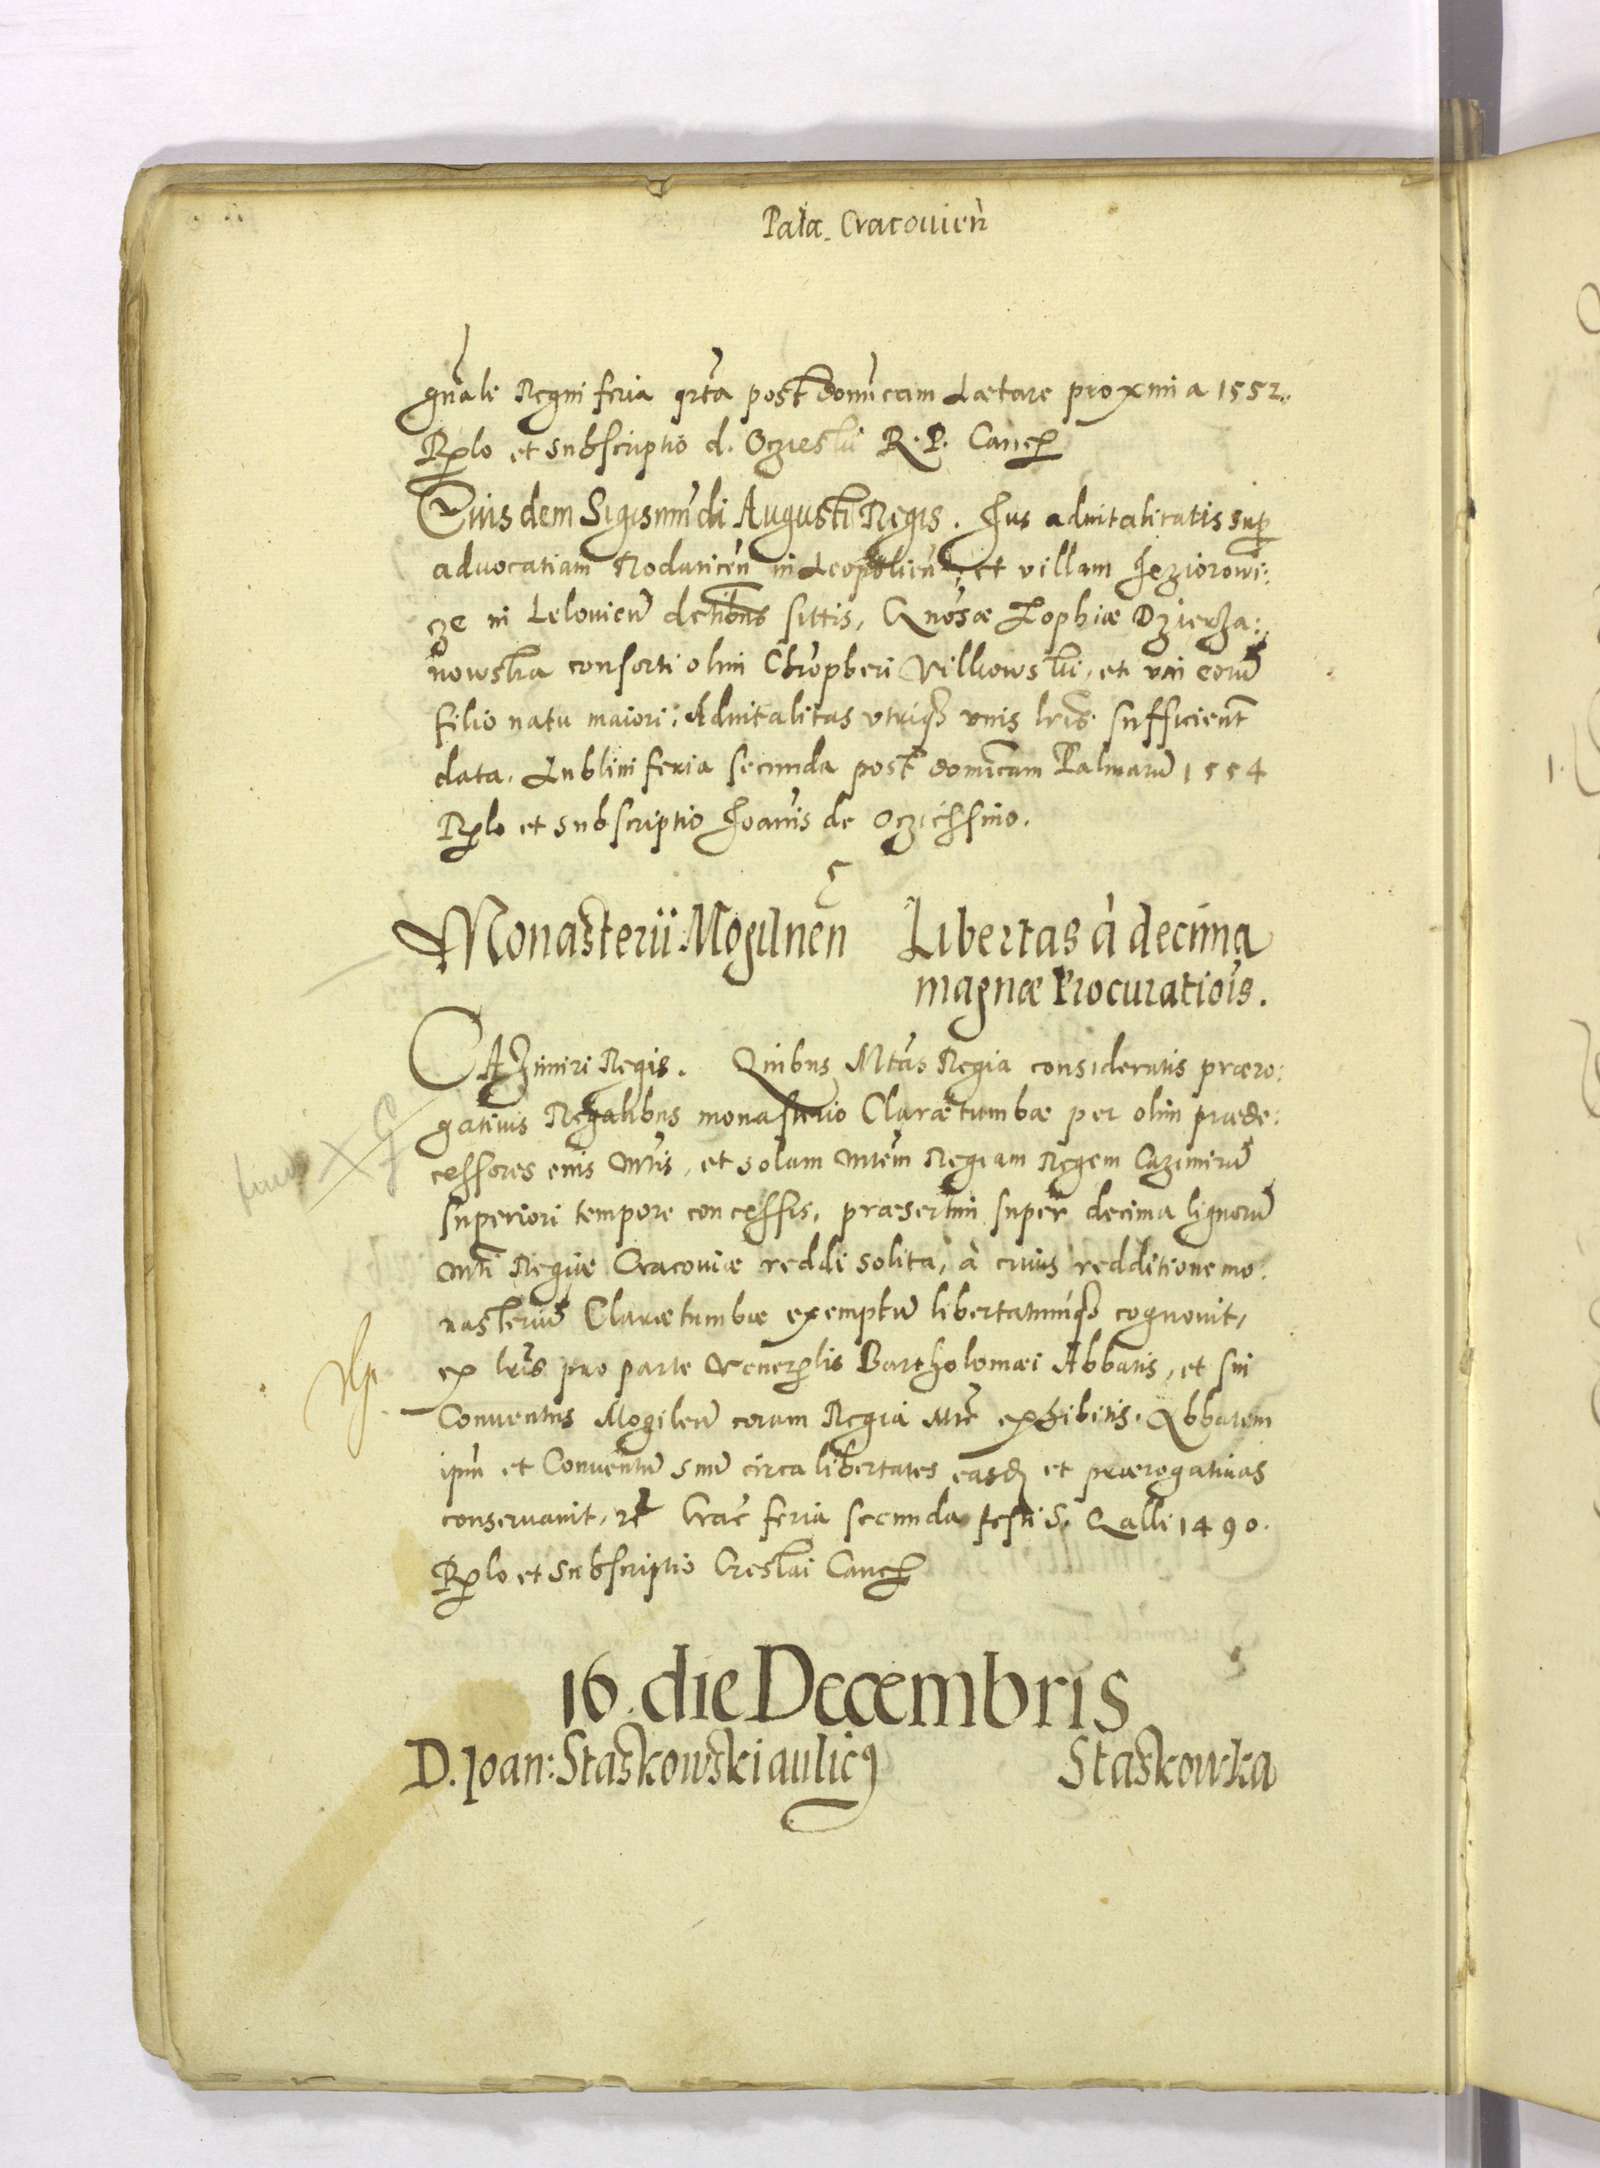 Pala. Cracouien
gnale Regni feria qrta post domicam Laetare proxima 1552.
Rlo et subscriptio d. Oczieski R. P. Canc
Eiusdem Sigismundi Augusti Regis. Jus aduitalitatis sup
aduocatiam Rodaticen in Leopolien, et villam Jeziorowi:
ze in Lelouien detibus sittis, Gnosae Zophiae Dzierza:
nowska consorti olim Chropheri Vilkowski, et vni eoru
filio natu maiori: Aduitalitas vtriq vnis lris sufficient
data. Lublini feria secunda post domicam Palmaru 1554
Rlo et subscriptio Joanis de Oczieschino.
Monasterii Mogilnen Libertas à decima
magnae Procuratiois.
CAZimiri Regis. Quibus Mtas Regia consideratis praero:
gatiuis Regalibus monasterio Claraetumbae per olim praede:
cessores eius Mtis, et solam Mtem Regiam Regem Cazimiru
superiori tempore concessis, praesertim super decima lignoru
Mti Regiae Cracouiae reddi solita, à cuius redditione mo:
nasteriu Claraetumbae exemptu libertatumq cognouit,
ex lris pro parte Venerlis Bartholomaei Abbatis, et sui
Conuentus Mogilen coram Regia Mte exhibitis. Abbatem
ipm et Conuentu suu circa libertates easd et praerogatiuas
conseruauit, rt Crac feria secunda festi S. Galli 1490.
Rlo et subscriptio Creslai Canc
16. die Decembris
D. Joan: Staskowski aulicus Staskowka